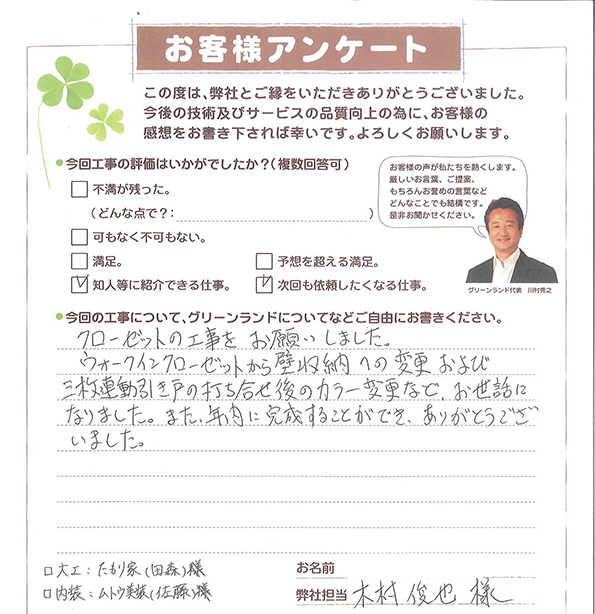 お客様アンケート
この度は、弊社とご縁をいただきありがとうございました。
今後の技術及びサービスの品質向上の為に、お客様の
感想をお書き下されば幸いです。よろしくお願いします。
今回工事の評価はいかがでしたか?(複数回答可)
不満が残った。
(どんな点で?: )
可もなく不可もない。
満足。
予想を超える満足。
知人等に紹介できる仕事。
次回も依頼したくなる仕事。
お客様の声が私たちを熱くします。
厳しいお言葉、ご提案、
もちろんお誉めの言葉など
どんなことでも結構です。
是非お聞かせください。
グリーンランド代表 川村秀之
今回の工事について、グリーンランドについてなどご自由にお書きください。
クローゼットの工事をお願いしました。
ウォークインクローゼットから壁収納への変更および
三枚連動引き戸の打ち合せ後のカラー変更など、お世話に
なりました。また、年内に完成することができ、ありがとうござ
いました。
大工:たもり家(田森)様
内装:ムトウ美装(佐藤)様
お名前
弊社担当 木村俊也 様